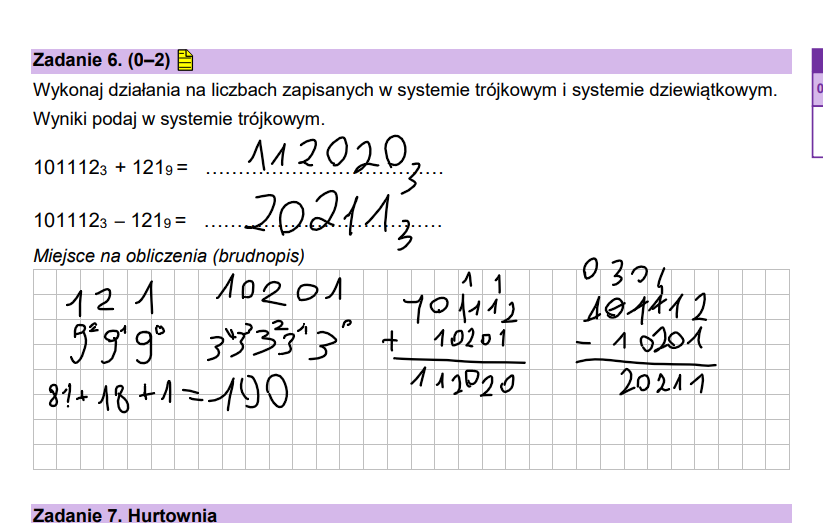 Zadanie 6. (0–2)
Wykonaj działania na liczbach zapisanych w systemie trójkowym i systemie dziewiątkowym.
Wyniki podaj w systemie trójkowym.
101112₃ + 121₉ = 112020₃
101112₃ – 121₉ = 20211₃
Miejsce na obliczenia (brudnopis)
1 2 1
9² 9¹ 9⁰
81 + 18 + 1 = 100
1 0 2 0 1
3⁴ 3³ 3² 3¹ 3⁰
1 1
101112
+ 10201
112020
0 3
101112
- 10201
20211
Zadanie 7. Hurtownia
0